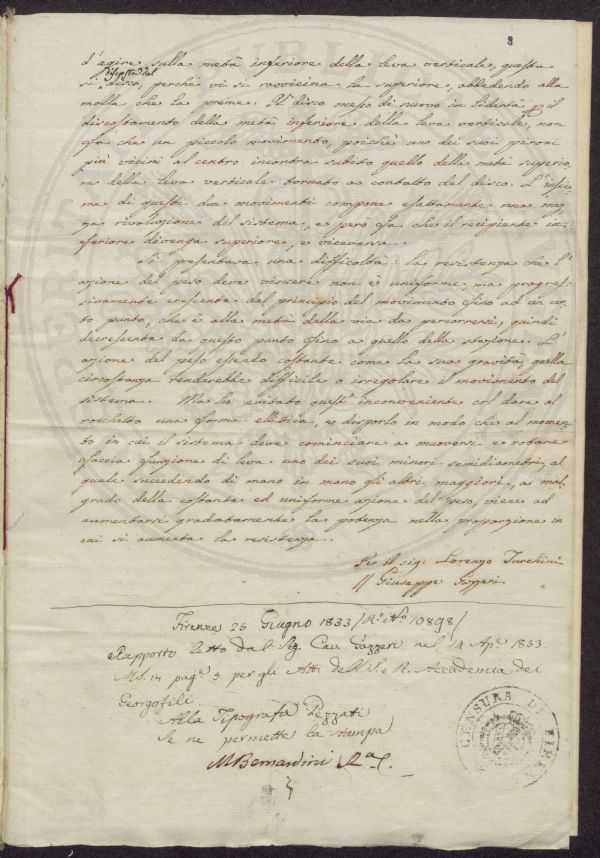 3
d'agire sulla metà inferiore della leva verticale, questa
si discosta dal
disco, perchè vi si ravvicina la superiore, obbedendo alla
molla che la preme. Il disco messo di nuovo in libertà, p il
discostamento della metà inferiore della leva verticale, non
fa che un piccolo movimento, poichè uno dei suoi pironi
più vicini al centro incontra subito quello della metà superio
re della leva verticale tornato a contatto del disco. L'insie
me di questi due movimenti compone esattamente una mez
za rivoluzione del sistema, e però fa che il recipiente in
feriore divenga superiore, e viceversa.
Si presentava una difficoltà: la resistenza che l'
azione del peso deve vincere non è uniforme, ma progres
sivamente crescente dal principio del movimento fino ad un cer
to punto, che è alla metà della via da percorrersi, quindi
decrescente da questo punto fino a quello della stazione. L'
azione del peso essendo costante come la sua gravità quella
circostanza renderebbe difficile o irregolare il movimento del
sistema. Ma ha evitato quest'inconveniente col dare al
rocchetto una forma ellittica, e disporlo in modo che al momen
to in cui il sistema deve cominciare a muoversi e rotare
faccia funzione di leva uno dei suoi minori semidiametri, al
quale succedendo di mano in mano gli altri maggiori, a mal
grado della costante ed uniforme azione del peso, viene ad
aumentarsi gradatamente la potenza nella proporzione in
cui si aumenta la resistenza.
Per il sig. Lorenzo Turchini
Giuseppe Gazzeri
Firenze 25 Giugno 1833 / R. No 10898 /
Rapporto letto dal Sig. Cav. Gazzeri nel 14 Ap. 1833
MS. in pag. 3. per gli Atti dell'I. e R. Accademia dei
Georgofili
Alla Tipografia Pezzati
Se ne permette la stampa
M Bernardini
CENSURA DI FIREN